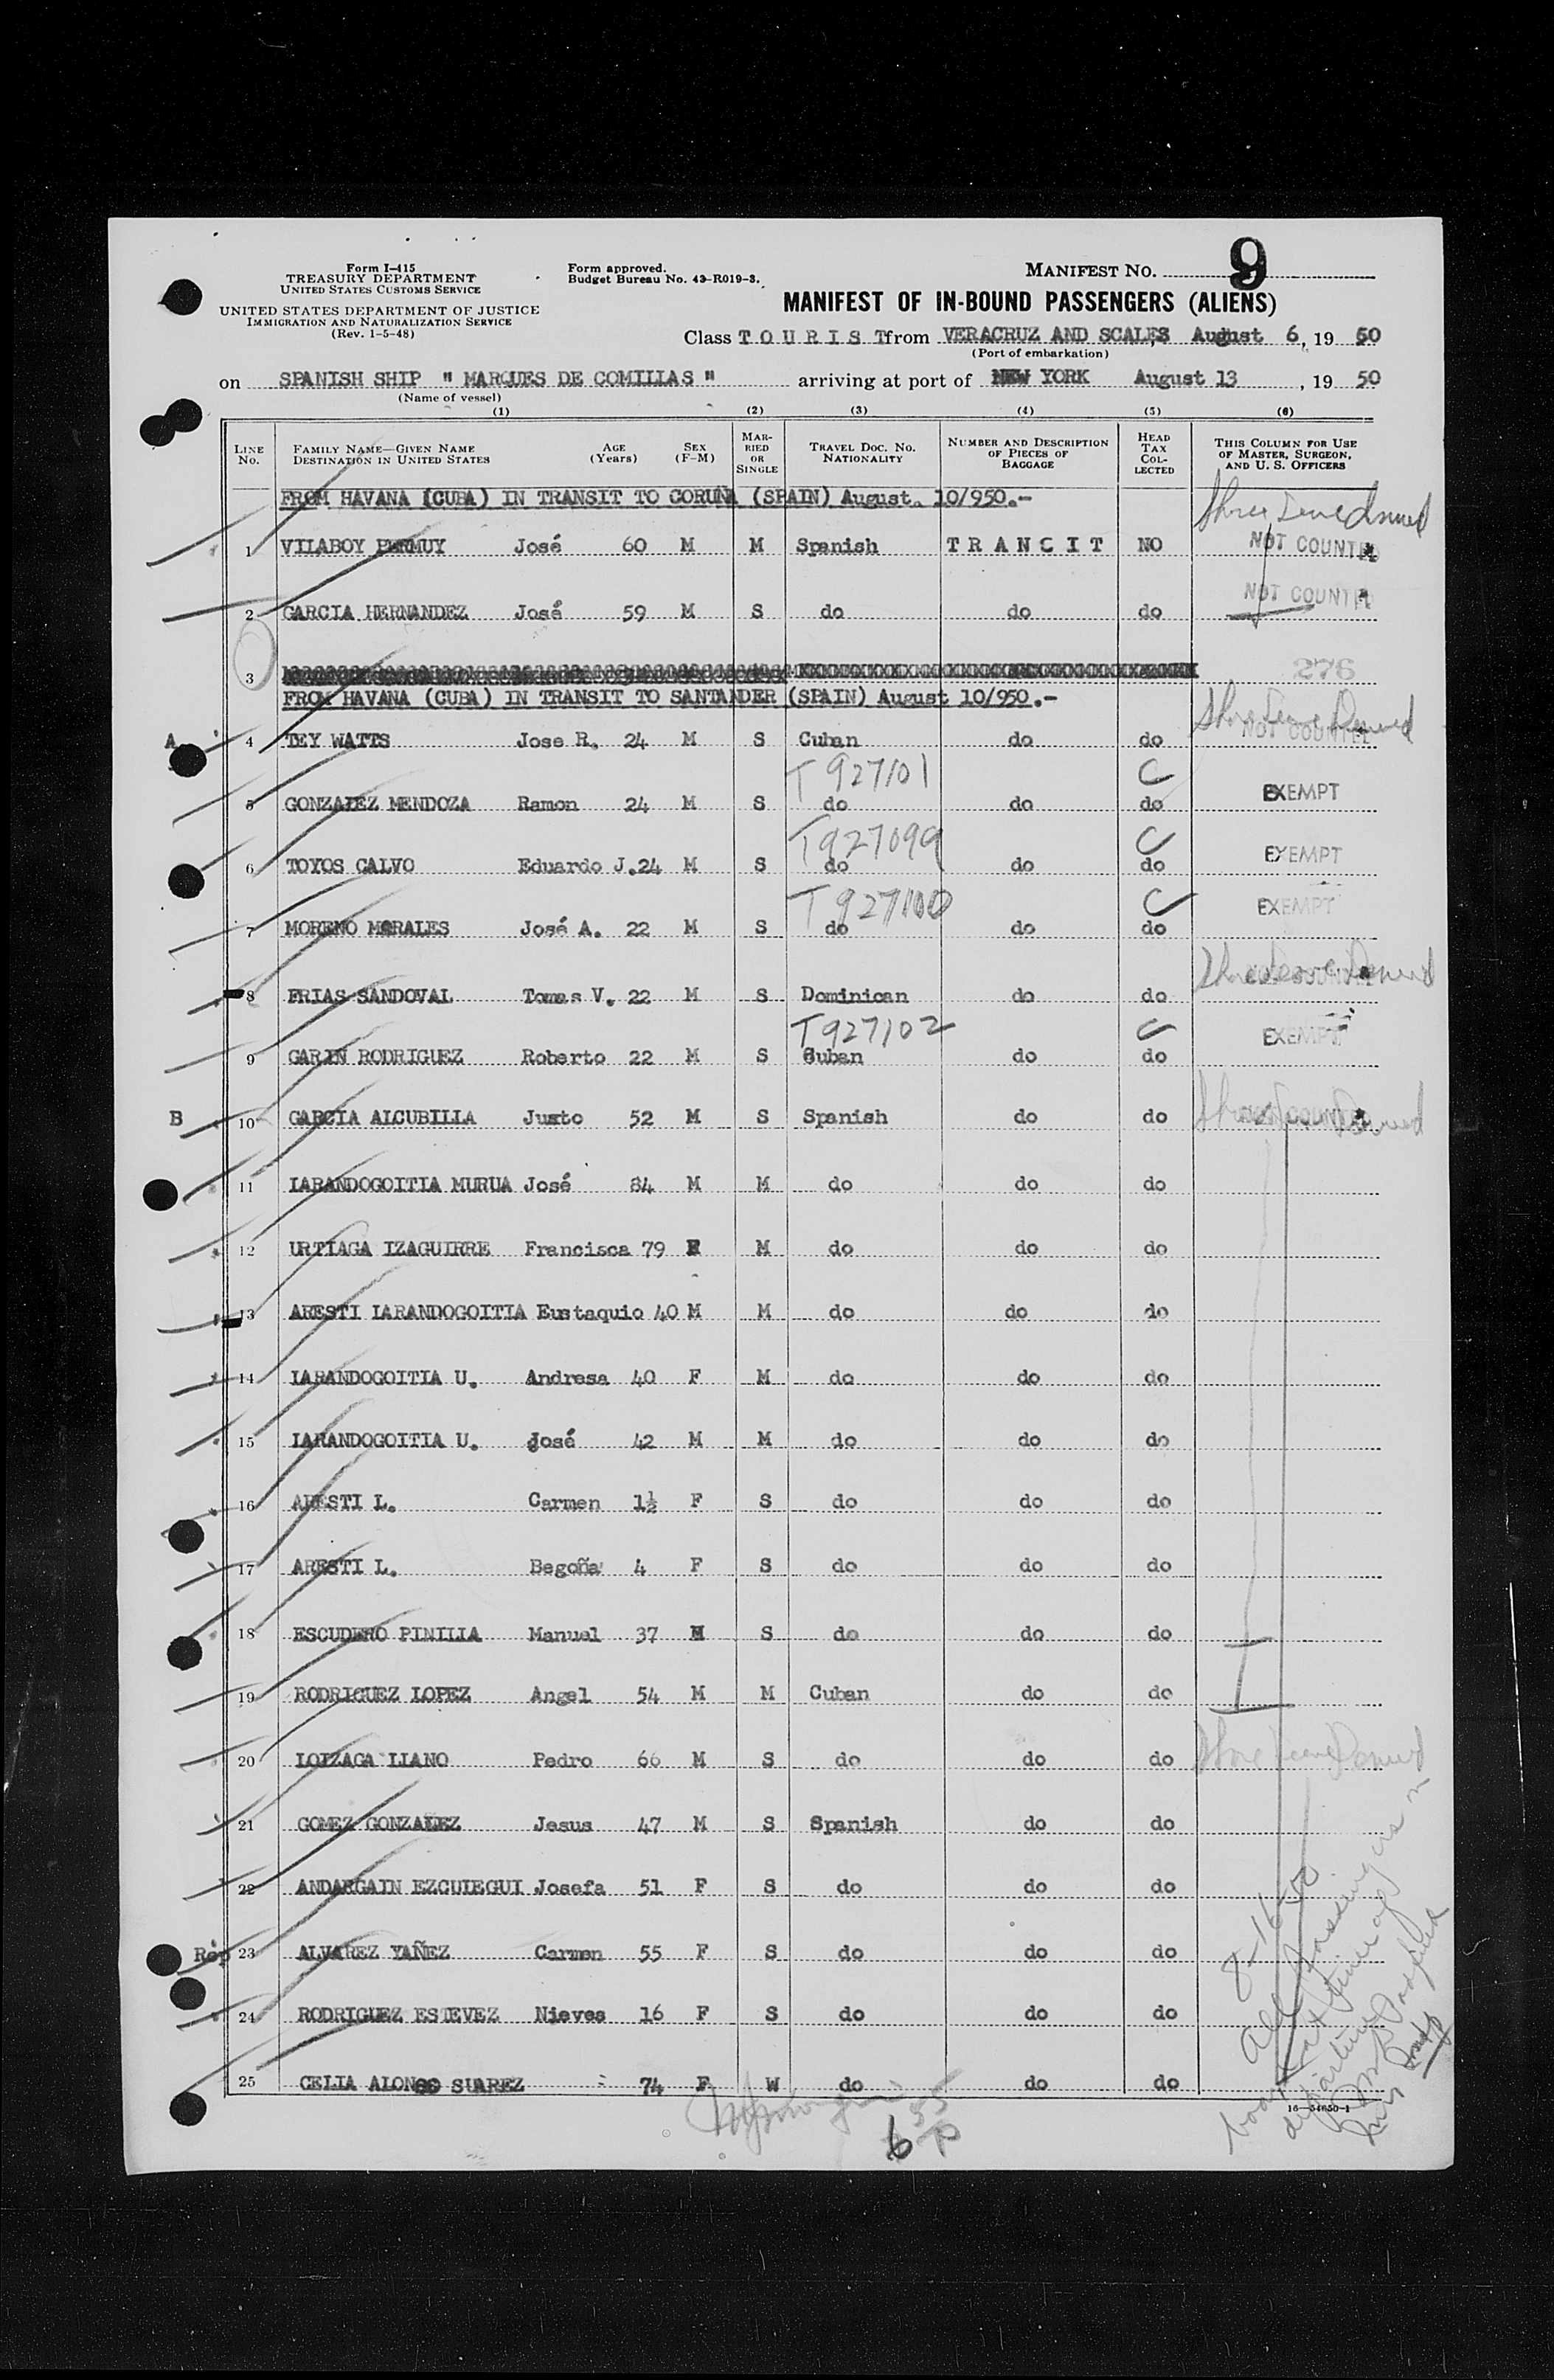 Form I-415
TREASURY DEPARTMENT
UNITED STATES CUSTOMS SERVICE
UNITED STATES DEPARTMENT OF JUSTICE
IMMIGRATION AND NATURALIZATION SERVICE
(Rev. 1-5-48)
Form approved.
Budget Bureau No. 43-R019-3.
MANIFEST NO. 9
MANIFEST OF IN-BOUND PASSENGERS (ALIENS)
Class T O U R I S T from VERACRUZ AND SCALES August 6, 19 50
(Port of embarkation)
on SPANISH SHIP " MARQUES DE COMILLAS " arriving at port of NEW YORK August 13, 19 50
(Name of vessel)
(1) (2) (3) (4) (5) (6)
LINE No. FAMILY NAME—GIVEN NAME DESTINATION IN UNITED STATES AGE (Years) SEX (F-M) MARRIED OR SINGLE TRAVEL DOC. NO. NATIONALITY NUMBER AND DESCRIPTION OF PIECES OF BAGGAGE HEAD TAX COLLECTED THIS COLUMN FOR USE OF MASTER, SURGEON, AND U. S. OFFICERS
FROM HAVANA (CUBA) IN TRANSIT TO CORUÑA (SPAIN) August. 10/950.-
1 VILABOY BERMUY José 60 M M Spanish T R A N C I T NO NOT COUNTED
2 GARCIA HERNANDEZ José 59 M S do do do NOT COUNTED
3 276
FROM HAVANA (CUBA) IN TRANSIT TO SANTANDER (SPAIN) August 10/950.-
Shore Leave Denied
A 4 TEY WATTS Jose R. 24 M S Cuban do do NOT COUNTED
T927101 C
5 GONZALEZ MENDOZA Ramon 24 M S do do do EXEMPT
T927099 C
6 TOYOS CALVO Eduardo J. 24 M S do do do EXEMPT
T927100 C
7 MORENO MORALES José A. 22 M S do do do EXEMPT
8 FRIAS SANDOVAL Tomas V. 22 M S Dominican do do Shore Leave Denied
T927102 C
9 GARIN RODRIGUEZ Roberto 22 M S Cuban do do EXEMPT
B 10 GARCIA ALCUBILLA Justo 52 M S Spanish do do Shore Leave Denied
11 LARANDOGOITIA MURUA José 84 M M do do do
12 URTIAGA IZAGUIRRE Francisca 79 F M do do do
13 ARESTI LARANDOGOITIA Eustaquio 40 M M do do do
14 LARANDOGOITIA U. Andresa 40 F M do do do
15 LARANDOGOITIA U. José 42 M M do do do
16 ARESTI L. Carmen 1½ F S do do do
17 ARESTI L. Begoña 4 F S do do do
18 ESCUDERO PINILLA Manuel 37 M S do do do
19 RODRIGUEZ LOPEZ Angel 54 M M Cuban do do
20 LOIZAGA LLANO Pedro 66 M S do do do Shore Leave Denied
21 GOMEZ GONZALEZ Jesus 47 M S Spanish do do
22 ANDARGAIN EZCUIEGUI Josefa 51 F S do do do
Rep 23 ALVAREZ YAÑEZ Carmen 55 F S do do do
24 RODRIGUEZ ESTEVEZ Nieves 16 F S do do do
25 CELIA ALONSO SUAREZ 74 F W do do do
8-16-50
All passengers on
board at time of
departure
16—54650-1
6